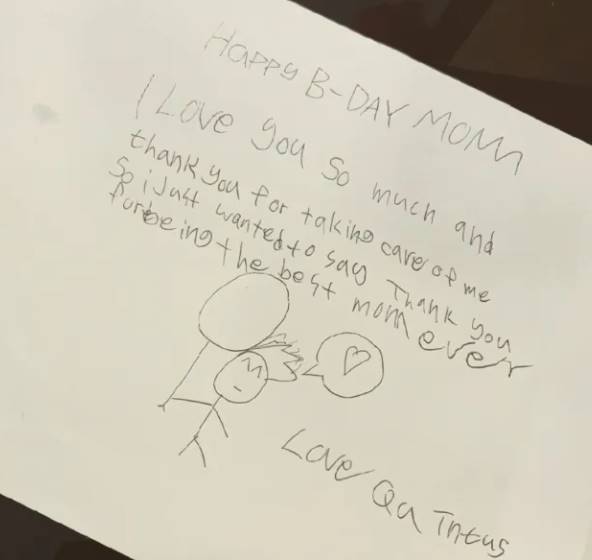 HAPPY B-DAY MOM
I Love you so much and
thank you for taking care of me
So i Just wanted to say Thank you
for being the best mom ever
Love Qu Intus